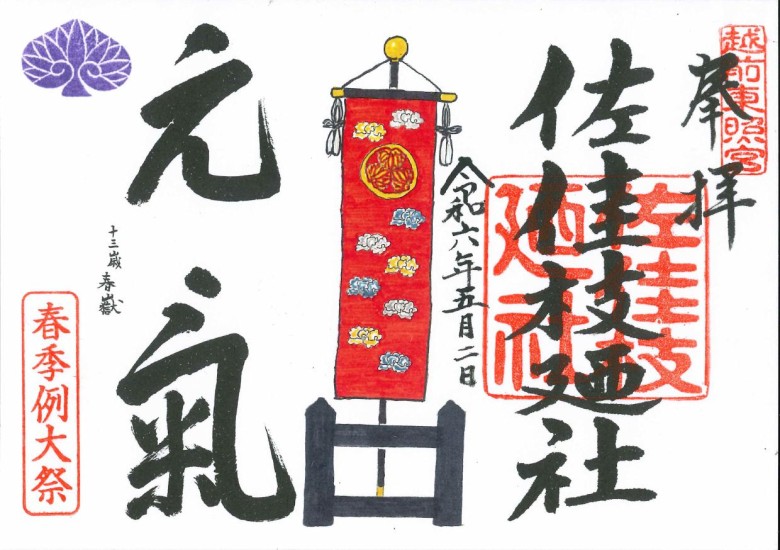 越前東照宮
奉拝
佐佳枝廼社
佐佳枝
廼社
令和六年五月二日
元氣
十三歳 春嶽
春季例大祭